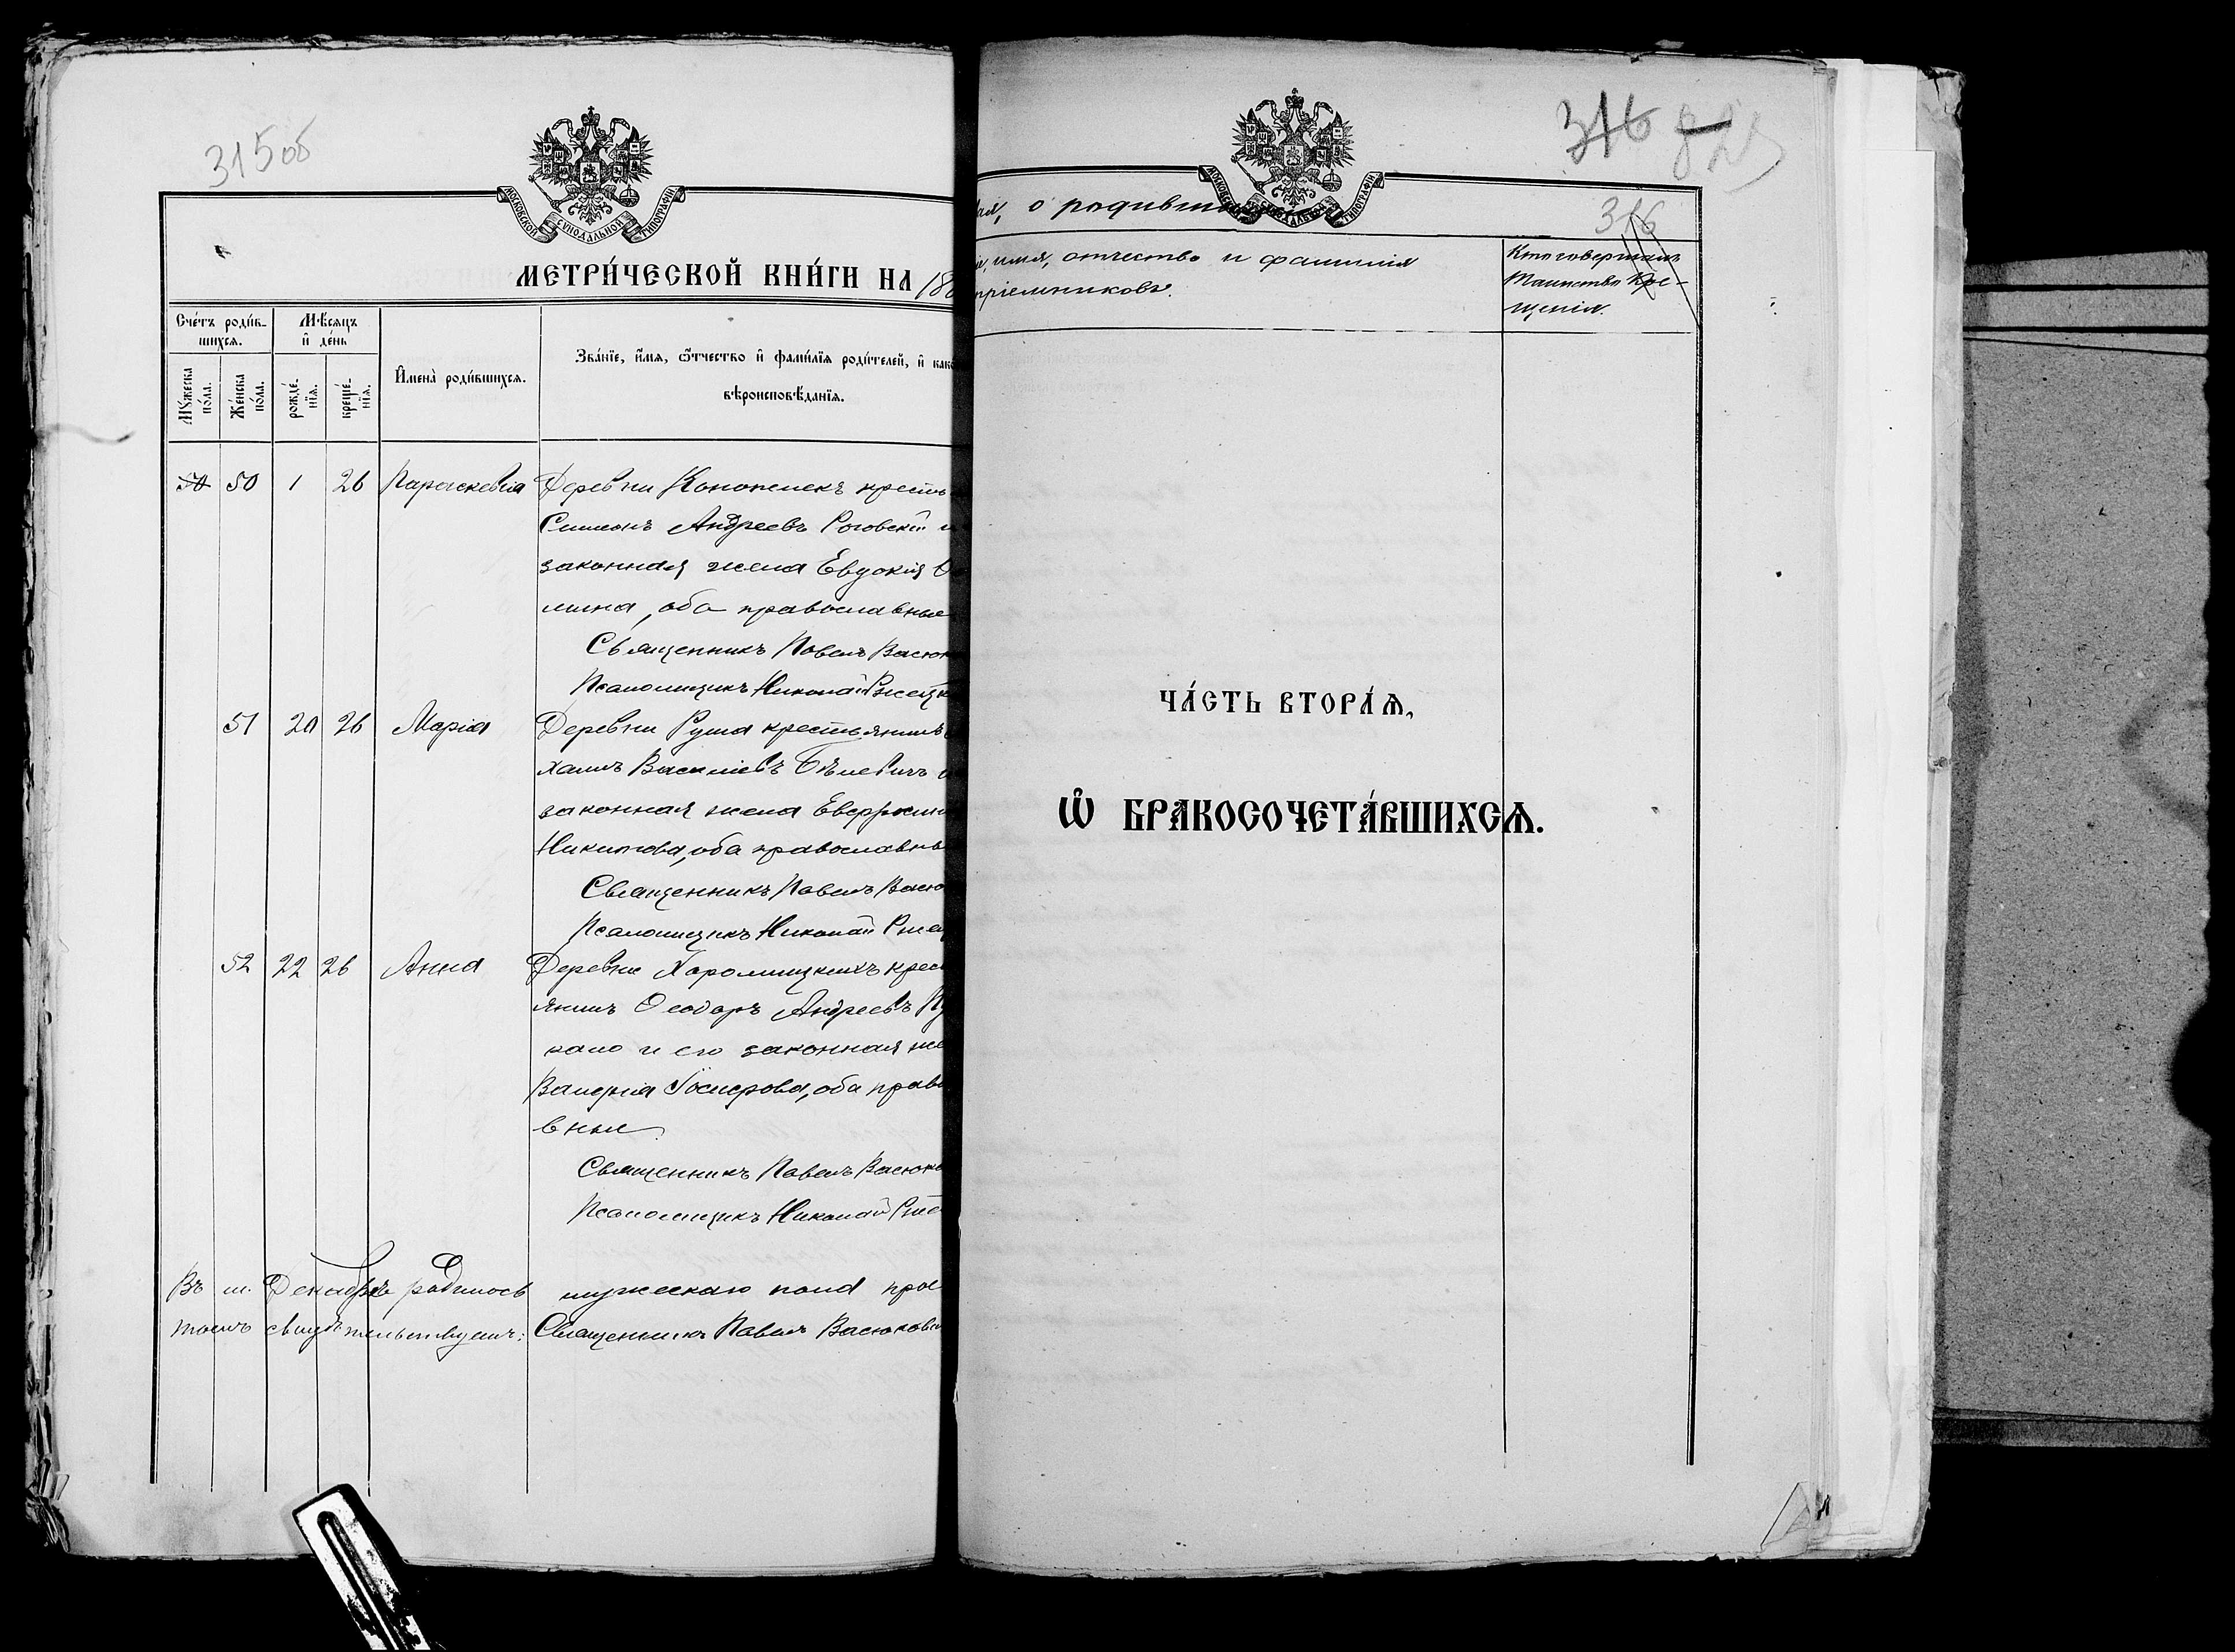 315об
МОСКОВСКОЙ СѴНОДАЛЬНОЙ ТИПОГРАФІИ
МЕТРИ́ЧЕСКОЙ КНИ́ГИ НА 18
Сче́тъ роди́в-
шихсѧ.
Мѣ́сѧцъ
и҆ де́нь
Мꙋ́жеска по́ла.
Же́нска по́ла.
рожде́-нїѧ.
креще́-нїѧ.
И҆мена̀ роди́вшихсѧ.
Зва́нїе, и҆́мѧ, ѻ҆́тчество и҆ фами́лїѧ роди́телей, и҆ как
вѣроисповѣ́данїѧ.
50 50 1 26 Параскевіа Деревни Конотекъ кресть
Симеонъ Андреевъ Роговскій и
законная жена Евдокія
мина, оба православные
Священникъ Павелъ Васюк
Псаломщикъ Николай
51 20 26 Марія Деревни Рума крестьянинъ
хаилъ Василіевъ Бѣлевичъ и
законная жена Евфросин
Никитова, оба православны
Священникъ Павелъ Васю
Псаломщикъ Николай
52 22 26 Анна Деревни Хоромицкихъ крес
янинъ Ѳеодоръ Андреевъ
кало и его законная же
Валерія Іосифова, оба право
вные
Священникъ Павелъ Васюко
Псаломщикъ Николай
Въ м. Декабрѣ родилось мужескаго пола
томъ свидѣтельствуемъ: Священникъ Павелъ Васюкови
316 82
МОСКОВСКОЙ СѴНОДАЛЬНОЙ ТИПОГРАФІИ
ая, о родившихся
316
іе, имя, отчество и фамилія
пріемниковъ.
Кто совершалъ
Таинство Кре-
щенія.
ЧА́СТЬ ВТОРА́Ѧ,
Ѡ҆ БРАКОСОЧЕТА́ВШИХСѦ.